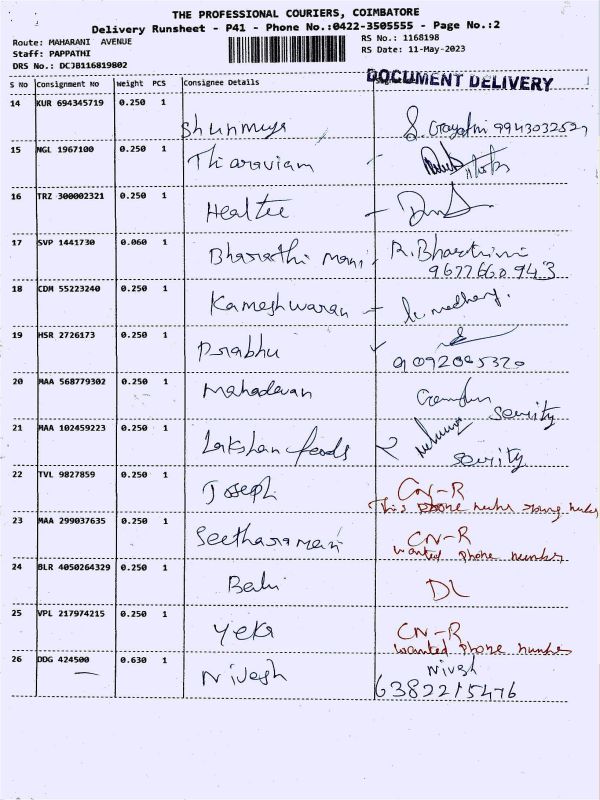 THE PROFESSIONAL COURIERS, COIMBATORE
Delivery Runsheet - P41 - Phone No.:0422-3505555 - Page No.:2
Route: MAHARANI AVENUE
RS No.: 1168198
Staff: PAPPATHI
RS Date: 11-May-2023
DRS No.: DCJB116819802
DOCUMENT DELIVERY
S No Consignment No Weight PCS Consignee Details
14 KUR 694345719 0.250 1
Shunmuga S. Gayathri 9943032527
15 NGL 1967100 0.250 1
Thiaraviam
16 TRZ 300002321 0.250 1
Healtee
17 SVP 1441730 0.060 1
Bharathi mani R. Bharthimi
9677660943
18 CDM 55223240 0.250 1
Kameshwaran
19 HSR 2726173 0.250 1
Prabhu
9092085320
20 MAA 568779302 0.250 1
Mahadevan
Sewrity
21 MAA 102459223 0.250 1
Lakshan foods
Sewrity
22 TVL 9827859 0.250 1
Joseph CN-R
This phone
23 MAA 299037635 0.250 1
Seetharaman CN-R
wanted phone number
24 BLR 4050264329 0.250 1
Balu DL
25 VPL 217974215 0.250 1
Yeka CN-R
wanted phone number
26 DDG 424500 0.630 1
Nivesh Nivesh
6382215476